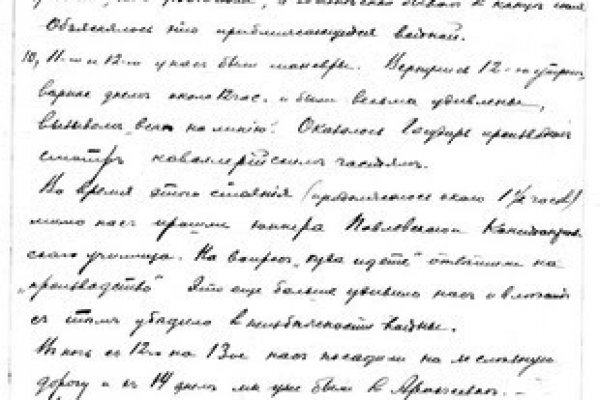 Объяснялось это приближающейся войной.
10, 11-го и 12-го у нас были маневры. Вернулись 12-го утром,
вернее днем около 12 час. и были весьма удивлены,
вызовом "всех на линию". Оказалось Государь производил
смотр кавалерийским частям.
Во время этого стояния (продолжалось около 1½ часов)
мимо нас прошли юнкера Павловского
ского училища. На вопрос "куда идете" отвечали на
"производство" Это еще больше удивило нас и
с тем убедило в неизбежности войны.
В ночь с 12го на 13ое нас посадили на железную
дорогу и к 14 днем мы уже были в